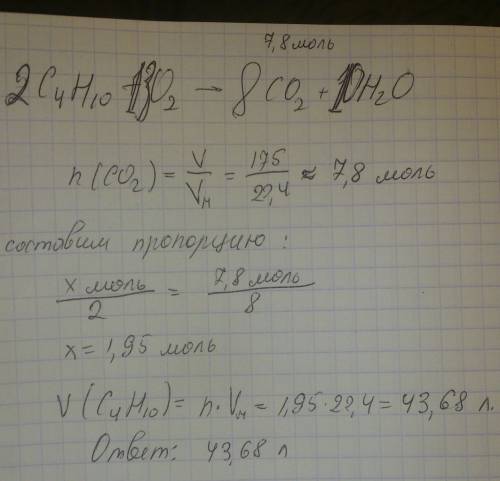 7,8 моль
2C₄H₁₀ + 13O₂ → 8CO₂ + 10H₂O
n(CO₂) = V/Vм = 175/22,4 ≈ 7,8 моль
составим пропорцию:
x моль/2 = 7,8 моль/8
x = 1,95 моль
V(C₄H₁₀) = n·Vм = 1,95·22,4 = 43,68 л.
Ответ: 43,68 л